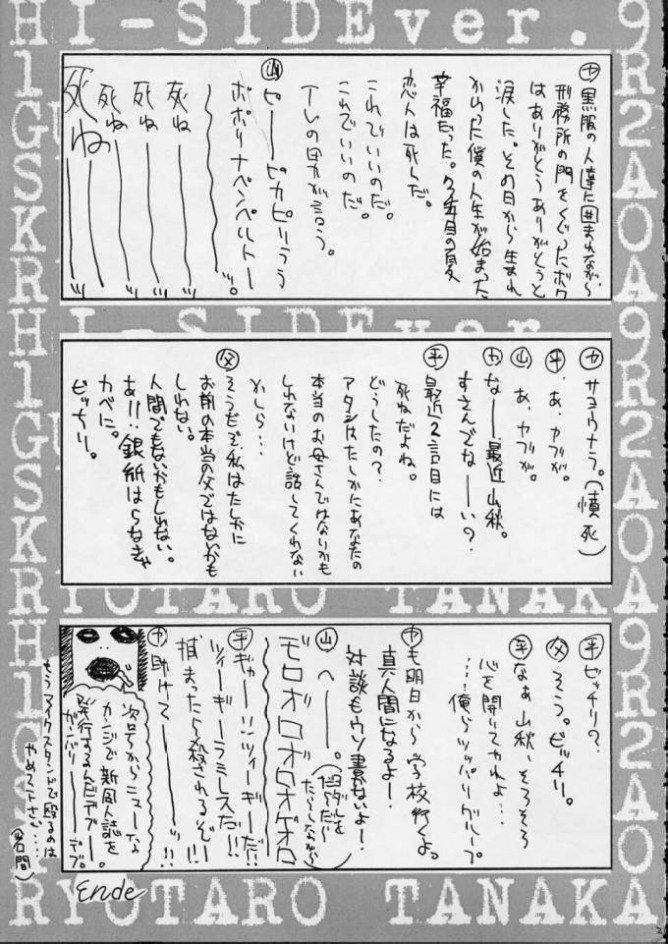 HI-SIDEver.9R2A0A9R2A0A9R2A0A
H1GSKRH1GSKRH1GSKR
HI-SIDEver.
RYOTARO TANAKA
RYOTARO TANAKA
ヤ 黒服の人達に囲まれながら
刑務所の門をくぐったボク
はありがとうありがとうと
涙した。その日から生まれ
かわった僕の人生が始まった
幸福だった。2年目の夏
恋人は死んだ。
これでいいのだ。
これでいいのだ。
山 ピーーピカピリうう
ポポリナペンペルトー
〜〜ッ。
死ねーーッ
死ねーーッ
死ねーーッ
死ねーーッ
ヤ サヨウナラ。(憤死)
平 あ、ヤブが。
山 あ、ヤブが。
ヤ なー、最近山秋。
すさんでなーい?
平 最近2言目には
死ねだよね。
どうしたの?
アタシはたしかにあなたの
本当のお母さんではないかも
しれないけど話してくれない
かしら…
父 そうだぞ私はたしかに
お前の本当の父ではないかも
しれない。
人間でもないかもしれない。
あ!!銀紙はらなきゃ
カベに。
ビッチリ。
平 ビッチリ?
父 そう。ビッチリ。
平 なぁ山秋、そろそろ
心を開いてやれよ…
……俺らツッパリグループ
ヤ も明日から学校行くよ。
真人間になるよー!
対談もウソ書かないよー!
山 へーー。
モロオロオロオゲロ
平 ギャー!!ツィーギーだ!!
ツィーギーラミレスだ!!
捕まったら殺されるぞー!!
ヤ 助けてーーッ!!
次号からニューな
カンジで新同人誌を
発行するんだデブー。
ガンバリーーデブ。
もうマイクスタンドで殴るのは
やめてください…
(岩間)
Ende